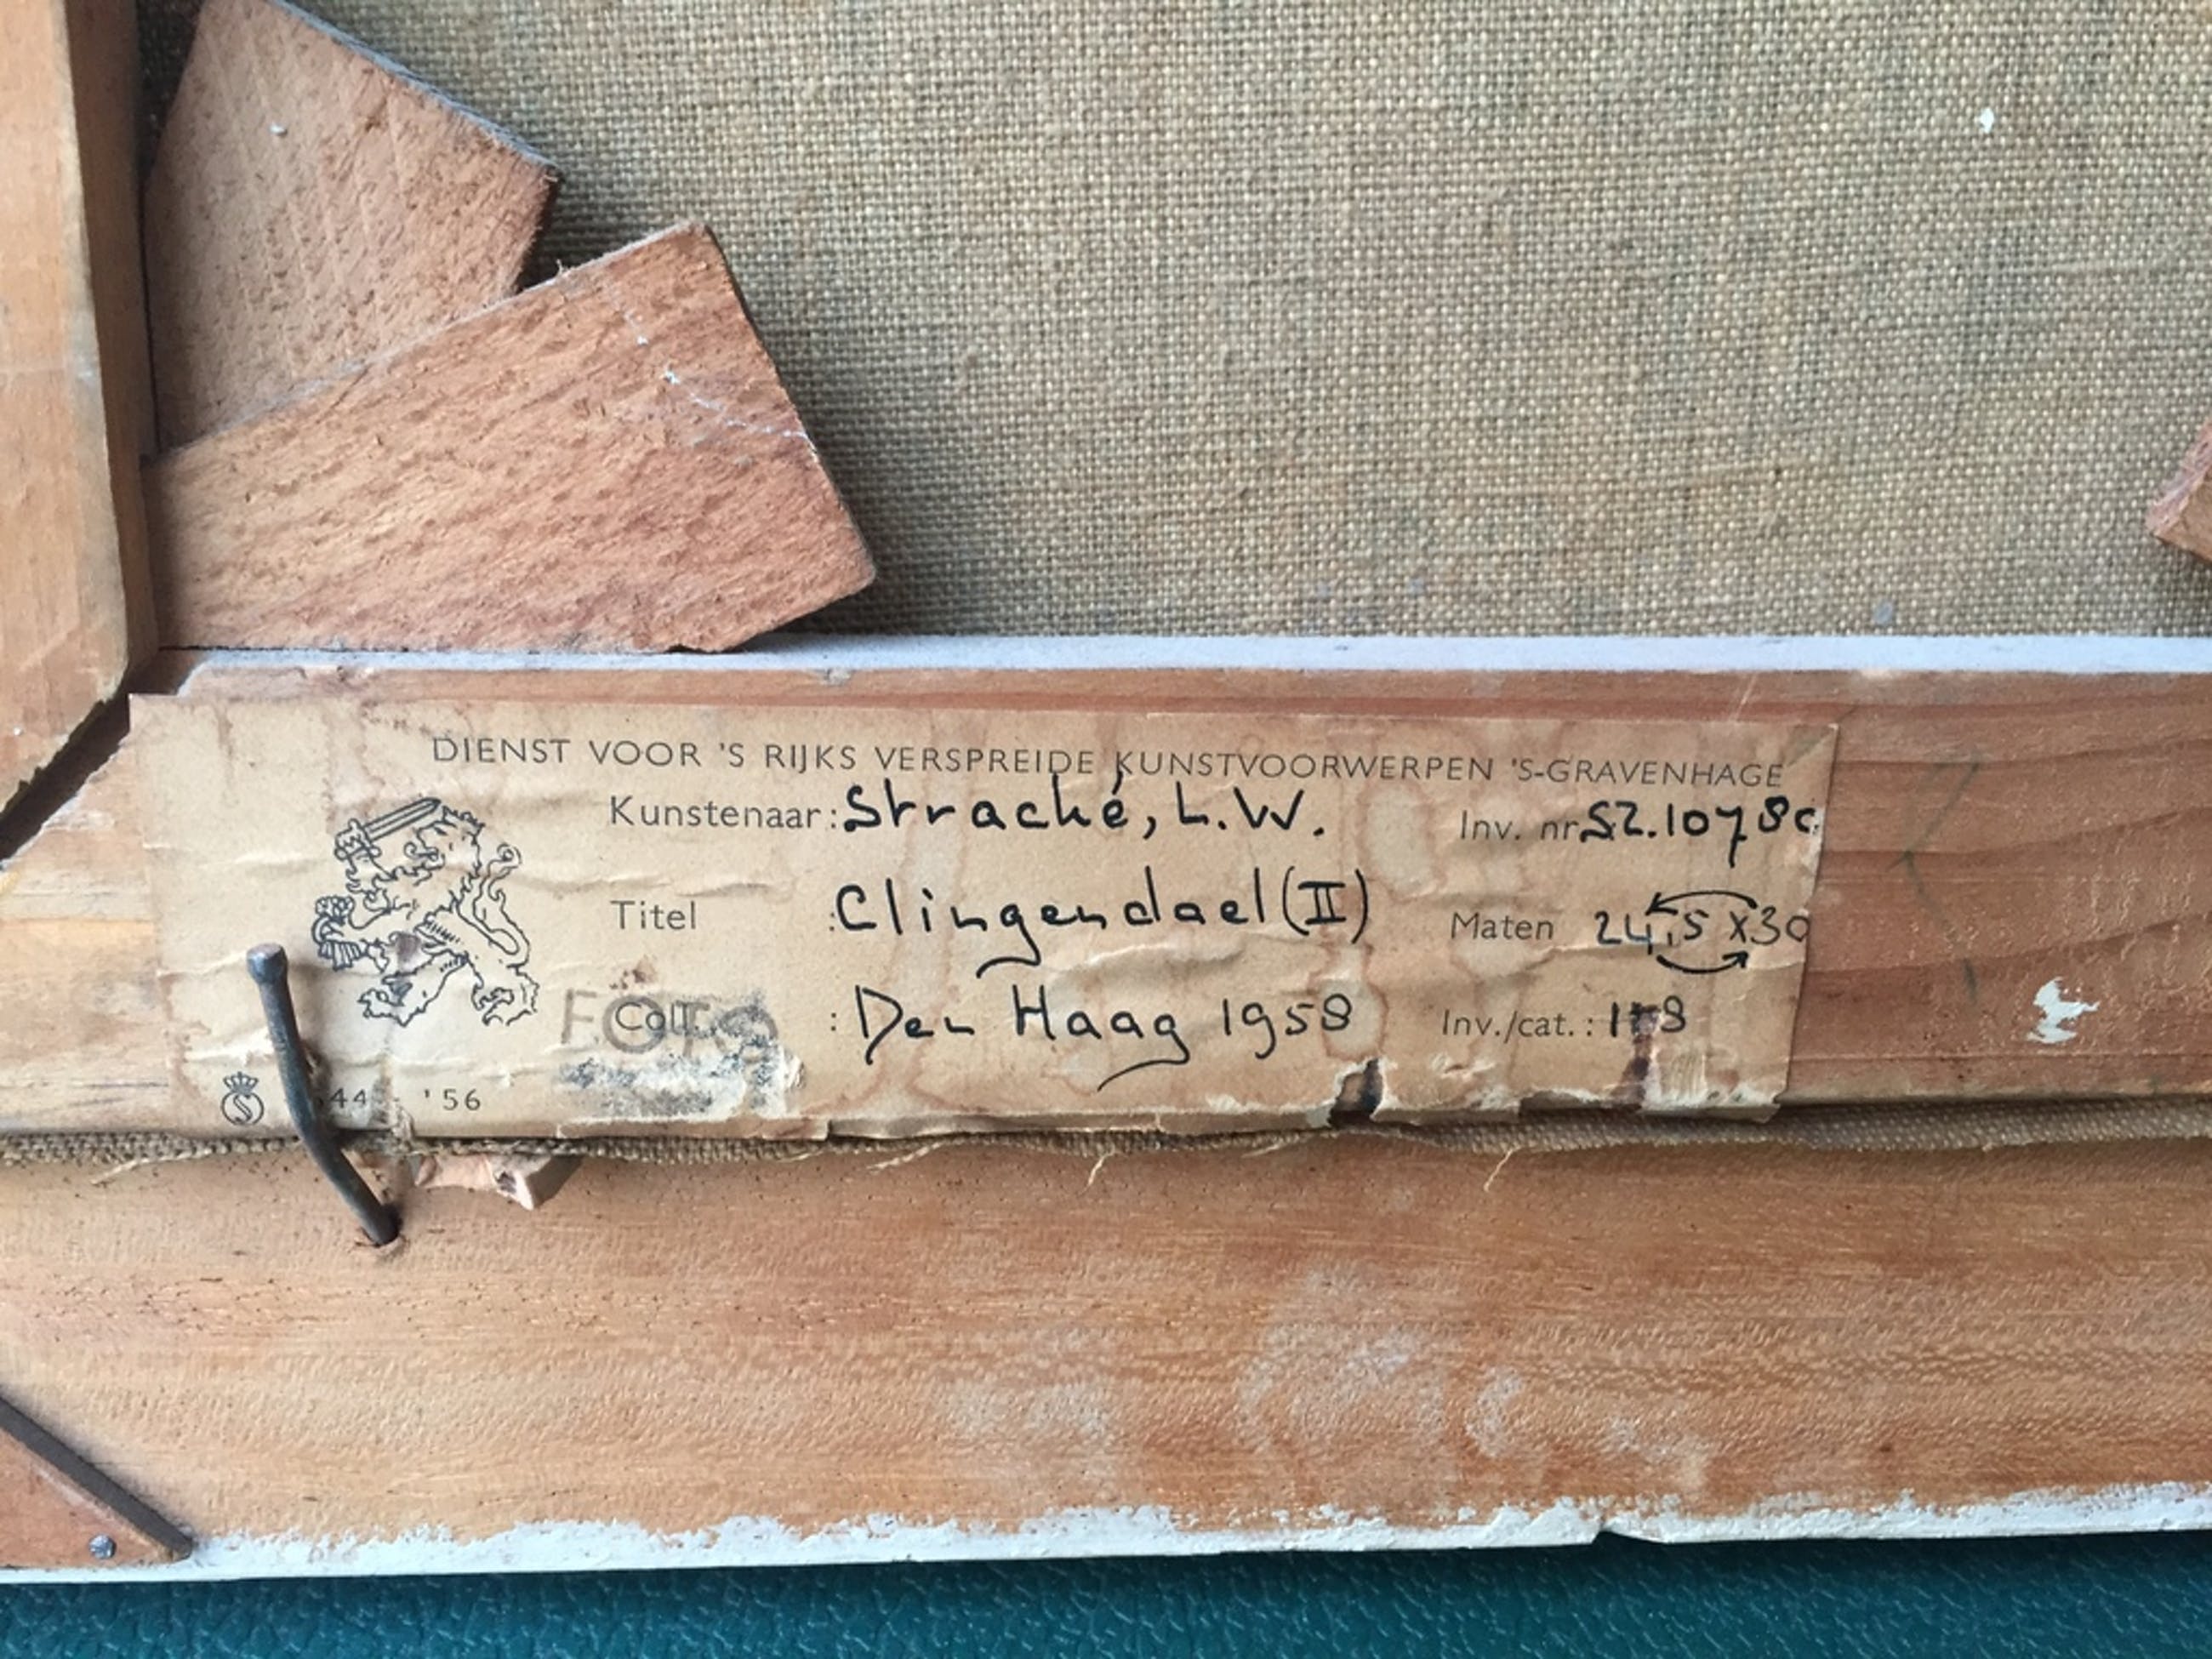 DIENST VOOR 'S RIJKS VERSPREIDE KUNSTVOORWERPEN 'S-GRAVENHAGE
Kunstenaar: Straché, L.W. Inv. nr. SZ.10780
Titel : Clingendael (II) Maten 24,5 x 30
Coll. : Den Haag 1958 Inv./cat.:
'56